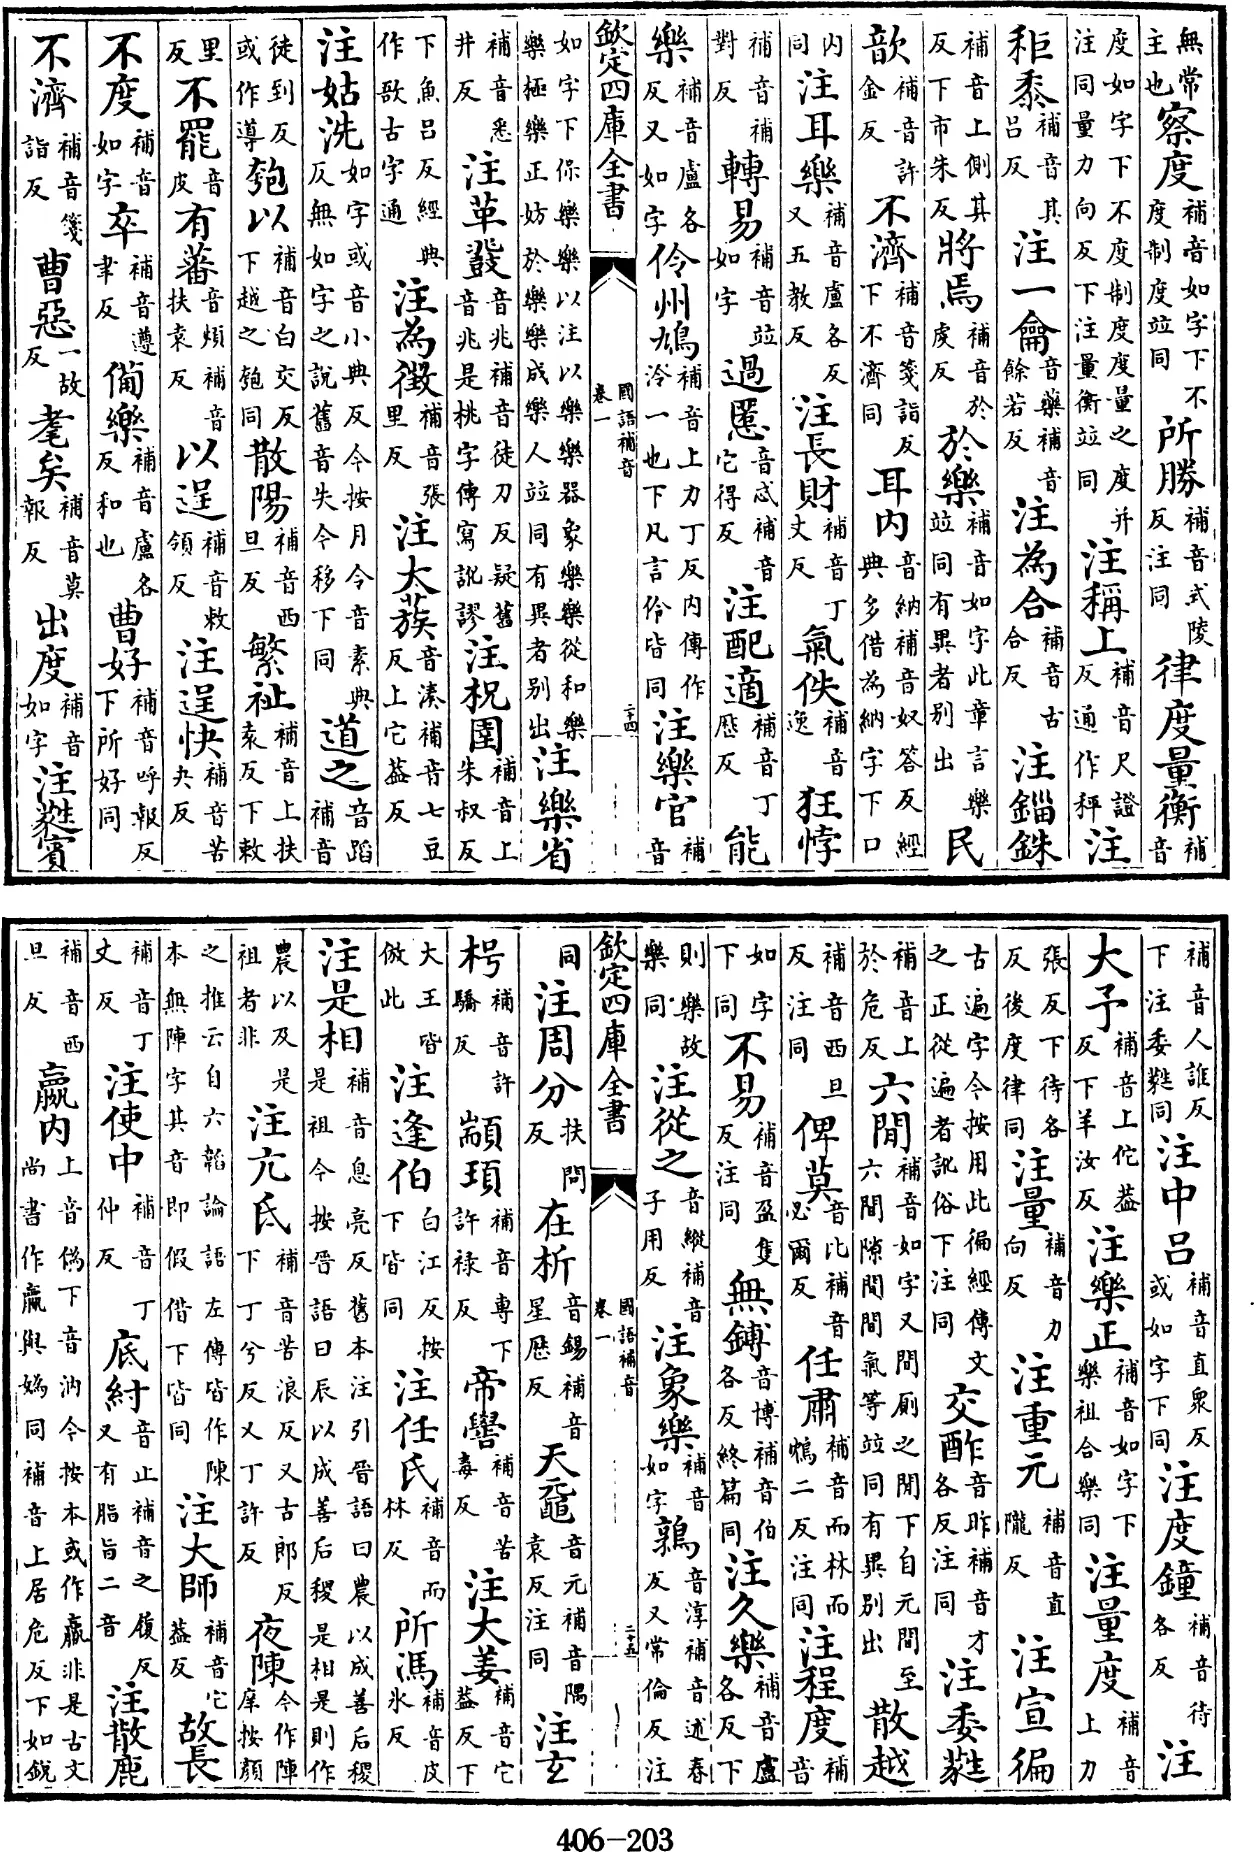 無常主也察度補音如字下不度制度竝同所勝補音式陵反注同律度量衡補音
度如字下不度制度度量之度并注同量力向反下注量衡竝同注稱上補音尺證反通作秤注
秬黍補音其呂反注一龠音藥補音餘若反注為合補音古合反注錙銖
補音上側其反下市朱反將焉補音於虔反於樂補音如字此章言樂竝同有異者別出民
歆補音許金反不濟補音箋詣反下不濟同耳内補音納補音奴答反經典多借為納字下口
内同注耳樂補音盧各反又五教反注長財補音丁丈反氣佚補音逸狂悖
補音補對反轉易補音竝如字過慝音忒補音它得反注配適補音丁歷反能
樂補音盧各反又如字伶州鳩補音上力丁反内傳作泠一也下凡言伶皆同注樂官補音
欽定四庫全書 國語補音卷一 二十四
如字下保樂樂以注以樂樂器象樂樂從和樂樂極樂正妨於樂樂成樂人竝同有異者別出注樂省
補音悉井反注革鼗音兆補音徒刀反疑舊音兆是桃字傳寫訛謬注柷圉補音上朱叔反
下魚呂反經典作敔古字通注為徵補音張里反注太蔟音湊補音七豆反上它葢反
注姑洗如字或音小典反今按月令音素典反無如字之說舊音失今移下同道之音蹈補音
徒到反或作導匏以補音白交反下越之匏同散陽補音西旦反繁祉補音上扶袁反下敕
里反不罷音皮有蕃音煩補音扶袁反以逞補音敕領反注逞快補音苦夬反
不度補音如字卒補音遵聿反備樂補音盧各反和也曹好補音呼報反下所好同
不濟補音箋詣反曹惡一故反耄矣補音莫報反出度補音如字注蕤賓
補音人誰反下注委蕤同注中呂補音直衆反或如字下同注度鐘補音待各反注
大予補音上佗葢反下羊汝反注樂正補音如字下樂祖合樂同注量度補音上力
張反下待各反後度律同注量補音力向反注重元補音直隴反注宣徧
古遍字今按用此徧經傳文之正從遍者訛俗下注同交酢音昨補音才各反注同注委蕤
補音上於危反六間補音如字又間廁之間下自元間至六間隙間間氣等竝同有異別出散越
補音西旦反注同俾莫音比補音必爾反任肅補音而林而鴆二反注同注程度補音
如字下同不易補音盈隻反注同無鎛音博補音伯各反終篇同注久樂補音盧各反下
則樂故樂同注從之音縱補音子用反注象樂補音如字鶉音淳補音述春反又常倫反注
欽定四庫全書 國語補音卷一 二十五
同注周分扶問反在析音錫補音星歷反天黿音元補音隅袁反注同注玄
枵補音許驕反顓頊補音專下許祿反帝嚳補音苦毒反注大姜補音它葢反下
大王皆倣此注逄伯白江反按下皆同注任氏補音而林反所馮補音皮氷反
注是相補音息亮反舊本注引晉語曰農以成善后稷是祖今按晉語曰辰以成善后稷是相是則作
農以及是祖者非注亢氐補音苦浪反又古郎反下丁兮反又丁許反夜陳今作陣庠按顏
之推云自六韜論語左傳皆作陳本無陣字其音即假借下皆同注大師補音它葢反故長
補音丁丈反注使中補音丁仲反厎紂音止補音之履反又有脂旨二音注散鹿
補音西旦反嬴内上音僞下音汭今按本或作嬴非是古文尚書作嬴與嬀同補音上居危反下如銳
406-203